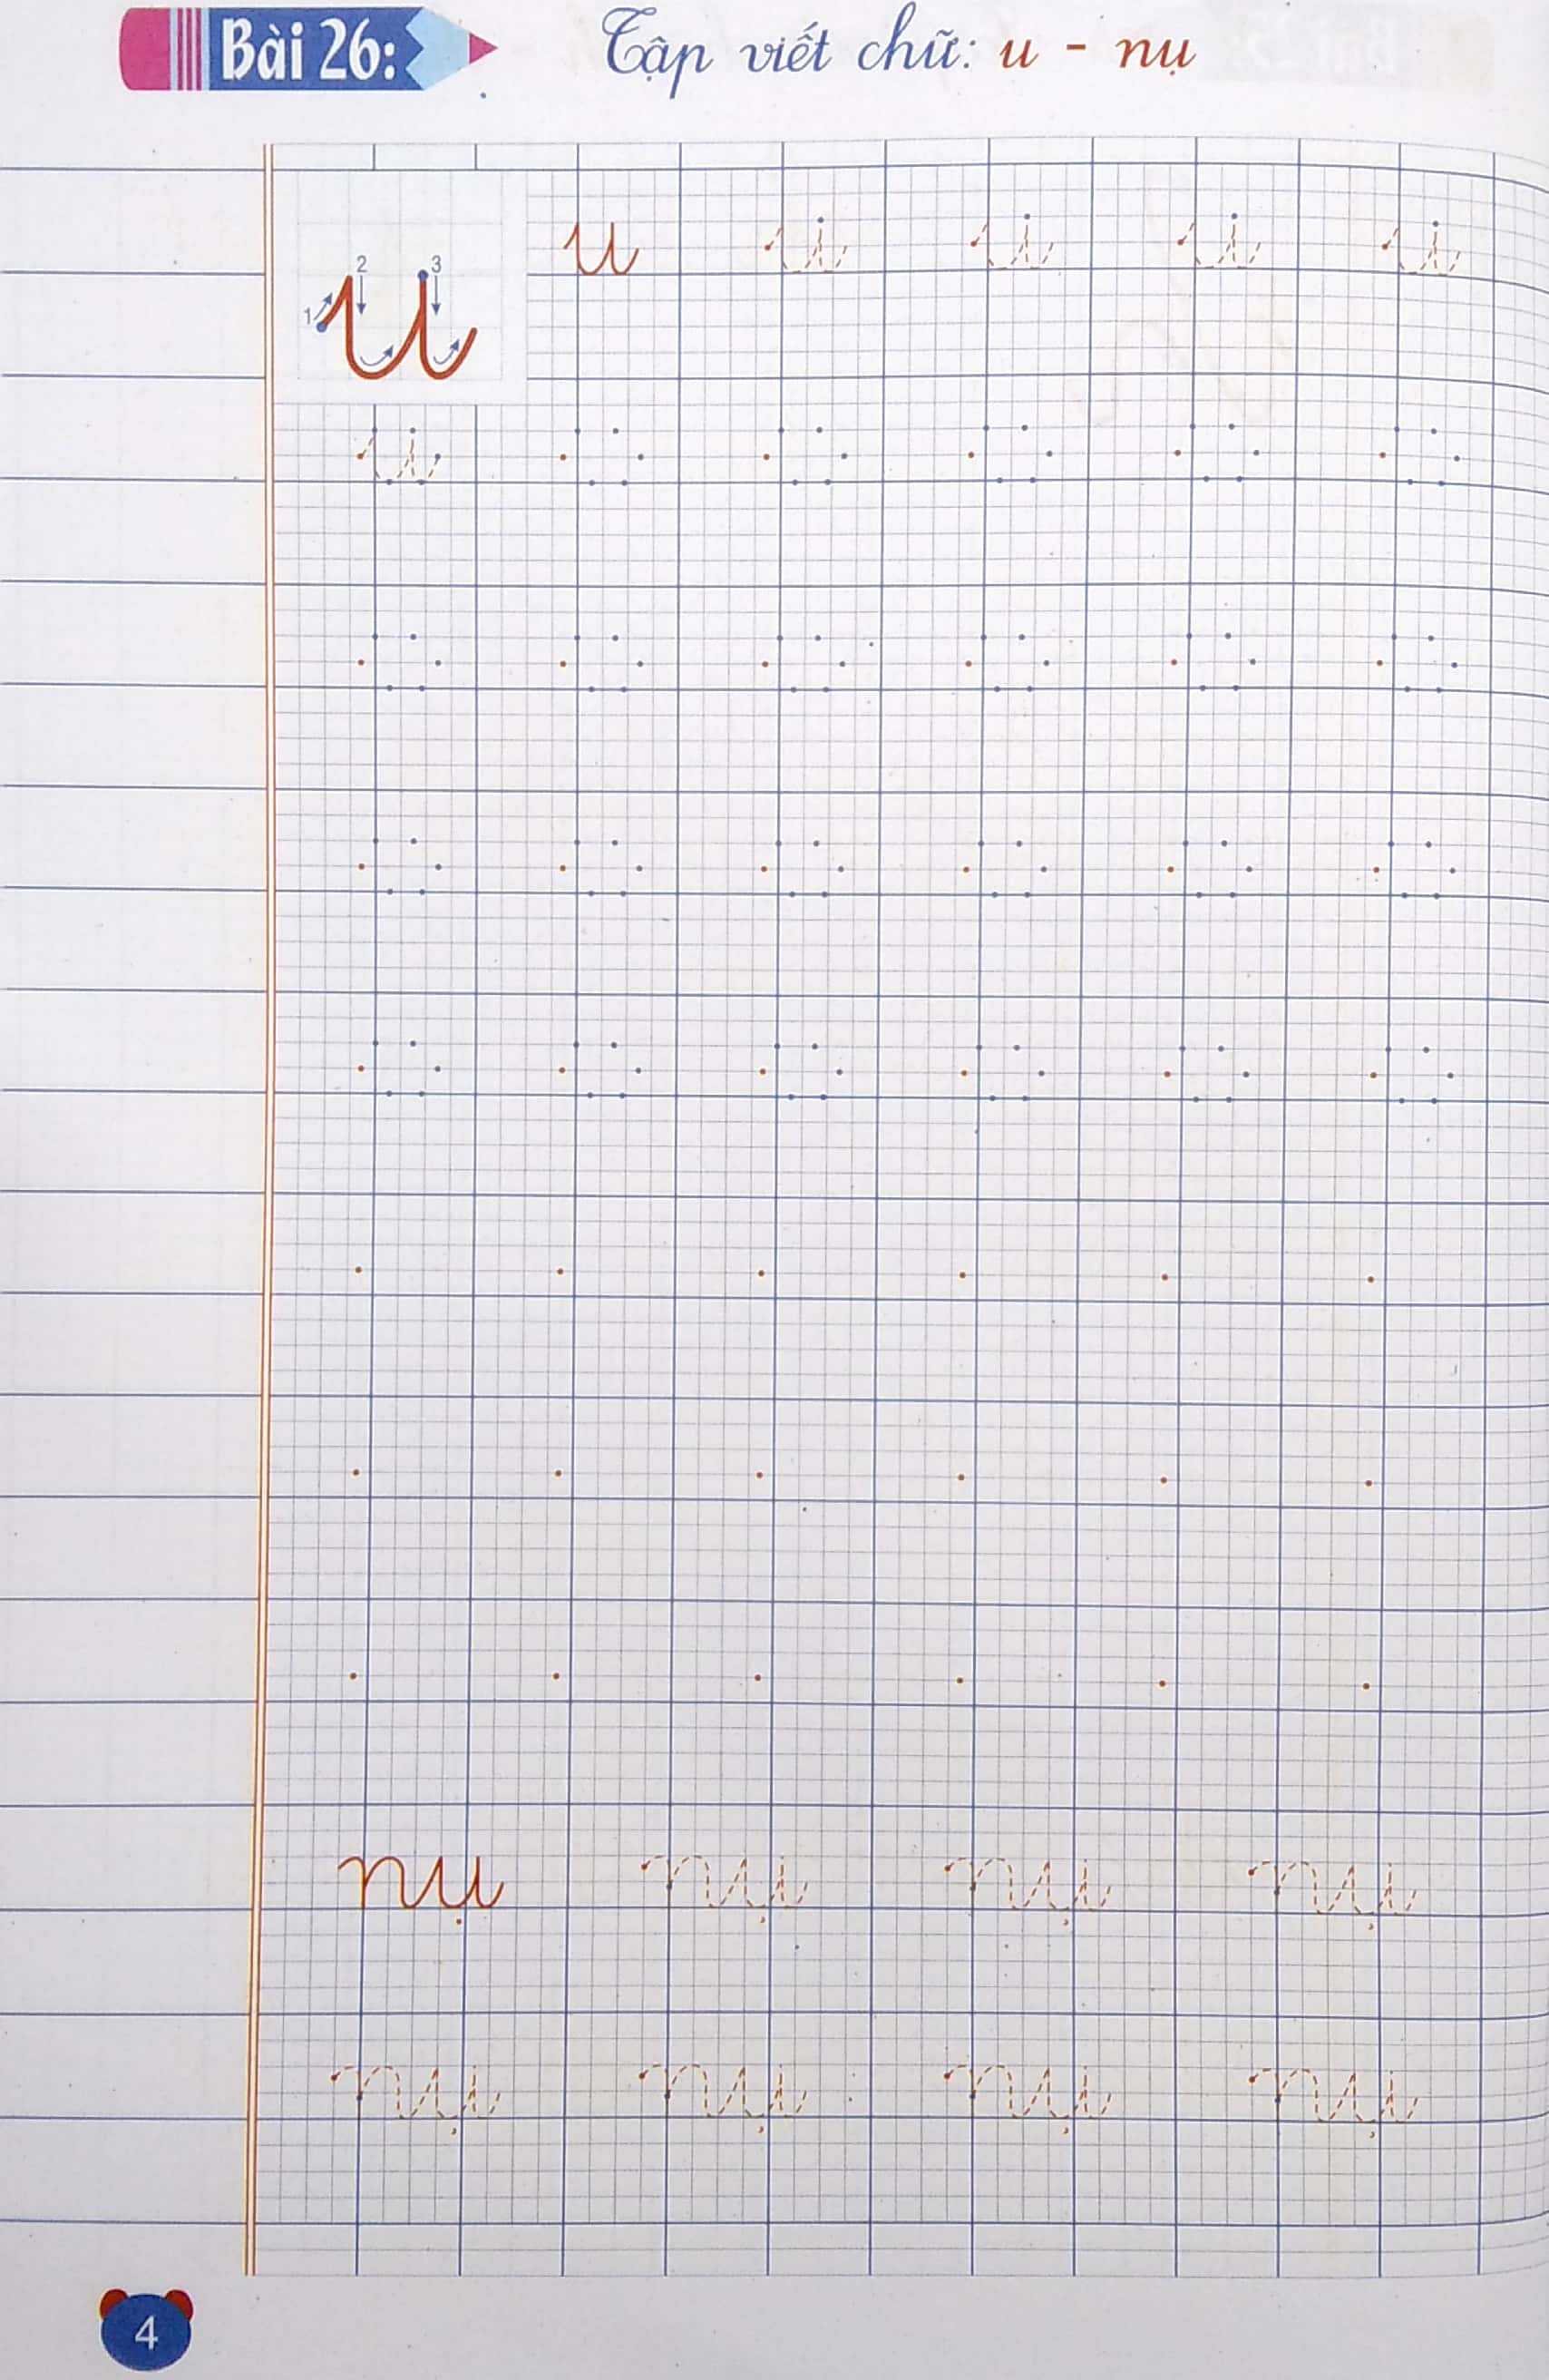 Bài 26: Tập viết chữ: u - nụ
1 2 3
u u u u u u
u
nụ nụ nụ nụ
nụ nụ nụ nụ
4